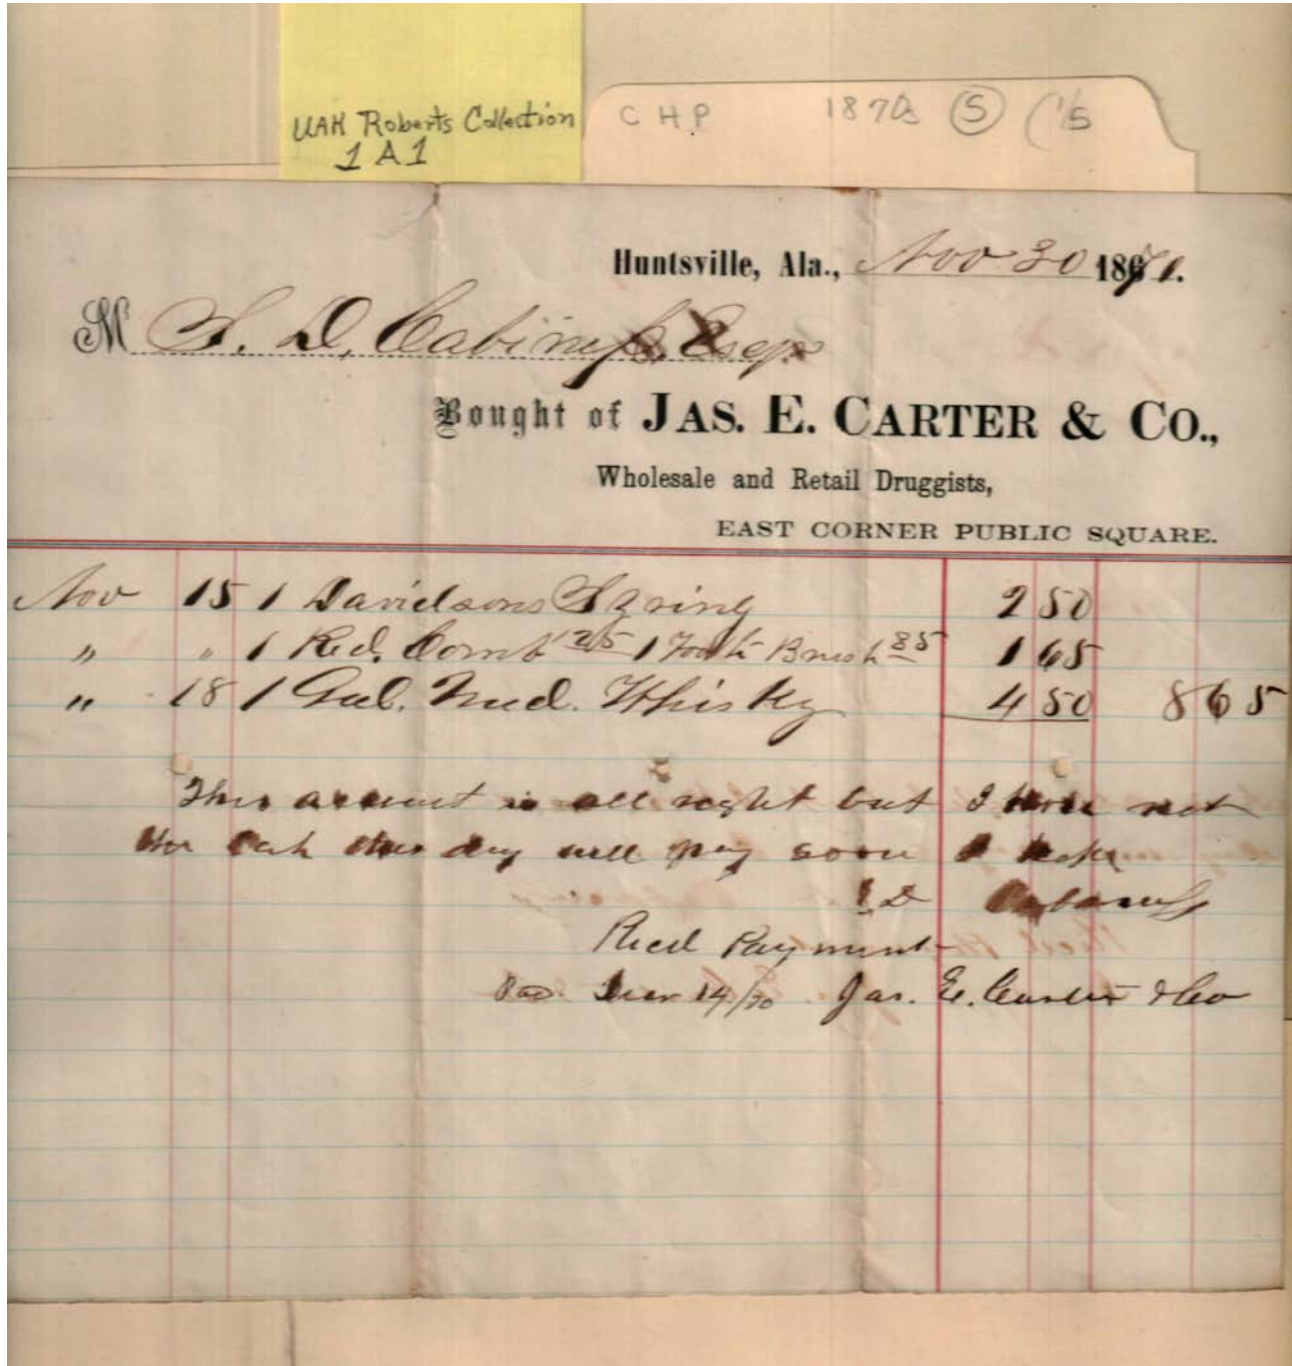 UAH Roberts Collection
1 A 1
CHP 1870s (S) (1/5
Huntsville, Ala., Nov 30 1870.
M S. D. Cabiness, Esqr
Bought of JAS. E. CARTER & CO.,
Wholesale and Retail Druggists,
EAST CORNER PUBLIC SQUARE.
Nov 15 1 Davidsons Syring 2 50
" " 1 Red. Comb 1 Tooth Brush 85 1 65
" 18 1 Gal. Med. Whisky 4 50 8 65
This account is all right but I have not
the cash this day will pay soon I hope
S D Cabaniss
Recd Payment
Dec 14/70 Jas. E. Carter & Co